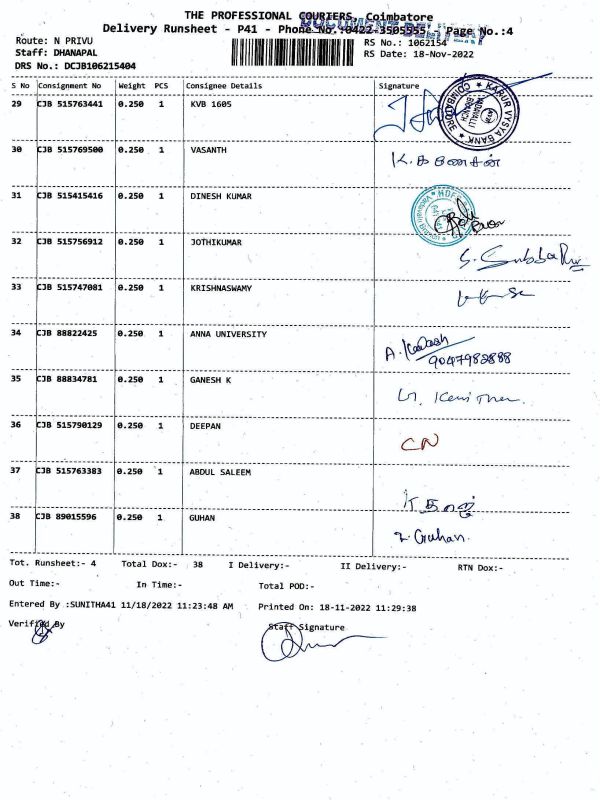 THE PROFESSIONAL COURIERS, Coimbatore
DOCUMENT DELIVERY
Delivery Runsheet - P41 - Phone No.:0422-3505555, Page No.:4
Route: N PRIVU RS No.: 1062154
Staff: DHANAPAL RS Date: 18-Nov-2022
DRS No.: DCJB106215404
S No Consignment No Weight PCS Consignee Details Signature
29 CJB 515763441 0.250 1 KVB 1605
KARUR VYSYA BANK COIMBATORE VADAVALLI BRANCH
30 CJB 515769500 0.250 1 VASANTH
31 CJB 515415416 0.250 1 DINESH KUMAR
HDFC
32 CJB 515756912 0.250 1 JOTHIKUMAR
33 CJB 515747081 0.250 1 KRISHNASWAMY
34 CJB 88822425 0.250 1 ANNA UNIVERSITY
A. Kailash
9047982888
35 CJB 88834781 0.250 1 GANESH K
36 CJB 515790129 0.250 1 DEEPAN
CN
37 CJB 515763383 0.250 1 ABDUL SALEEM
38 CJB 89015596 0.250 1 GUHAN
Guhan.
Tot. Runsheet:- 4 Total Dox:- 38 I Delivery:- II Delivery:- RTN Dox:-
Out Time:- In Time:- Total POD:-
Entered By :SUNITHA41 11/18/2022 11:23:48 AM Printed On: 18-11-2022 11:29:38
Verified By Staff Signature